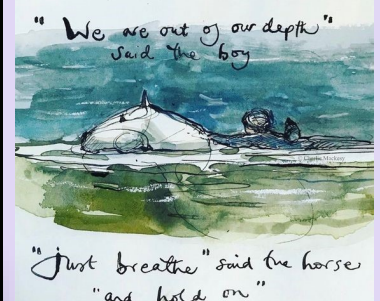 "We are out of our depth"
said the boy
Charlie Mackesy
"Just breathe" said the horse
"and hold on"